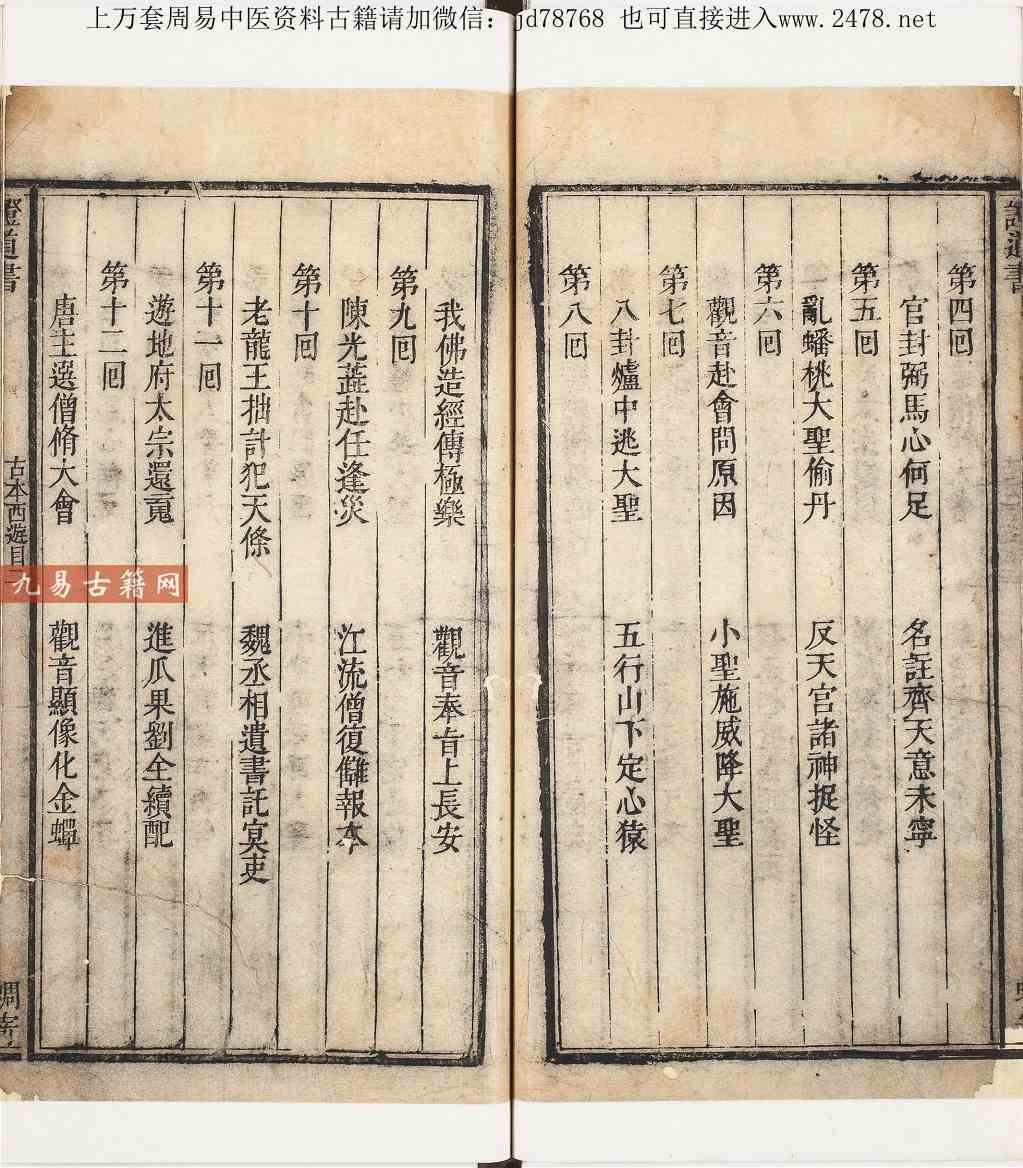 上万套周易中医资料古籍请加微信：jd78768 也可直接进入www.2478.net
證道書
第四囘
官封弼馬心何足　名註齊天意未寧
第五囘
亂蟠桃大聖偷丹　反天宮諸神捉怪
第六囘
觀音赴會問原因　小聖施威降大聖
第七囘
八卦爐中逃大聖　五行山下定心猿
第八囘
我佛造經傳極樂　觀音奉旨上長安
第九囘
陳光蕋赴任逢災　江流僧復讎報本
第十囘
老龍王拙計犯天條　魏丞相遺書託冥吏
第十一囘
遊地府太宗還䰟　進瓜果劉全續配
第十二囘
唐主選僧脩大會　觀音顯像化金蟬
證道書
古本西遊目
九易古籍网